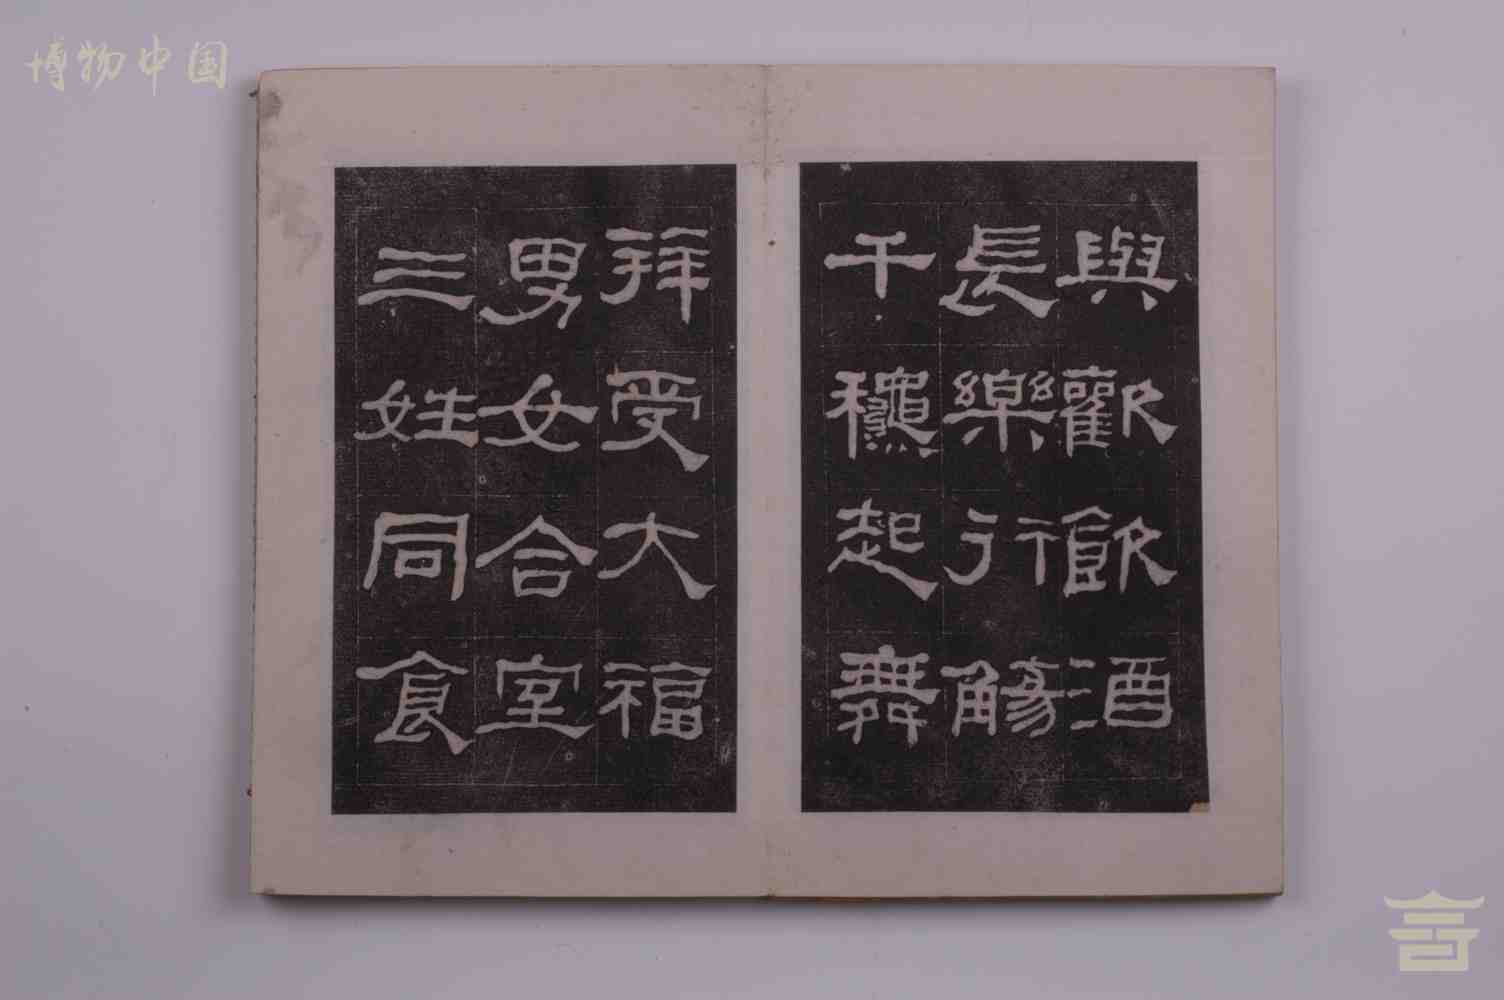 博物中国
與歡飮酒
長樂行觴
千穐起舞
拜受大福
男女合室
三姓同食